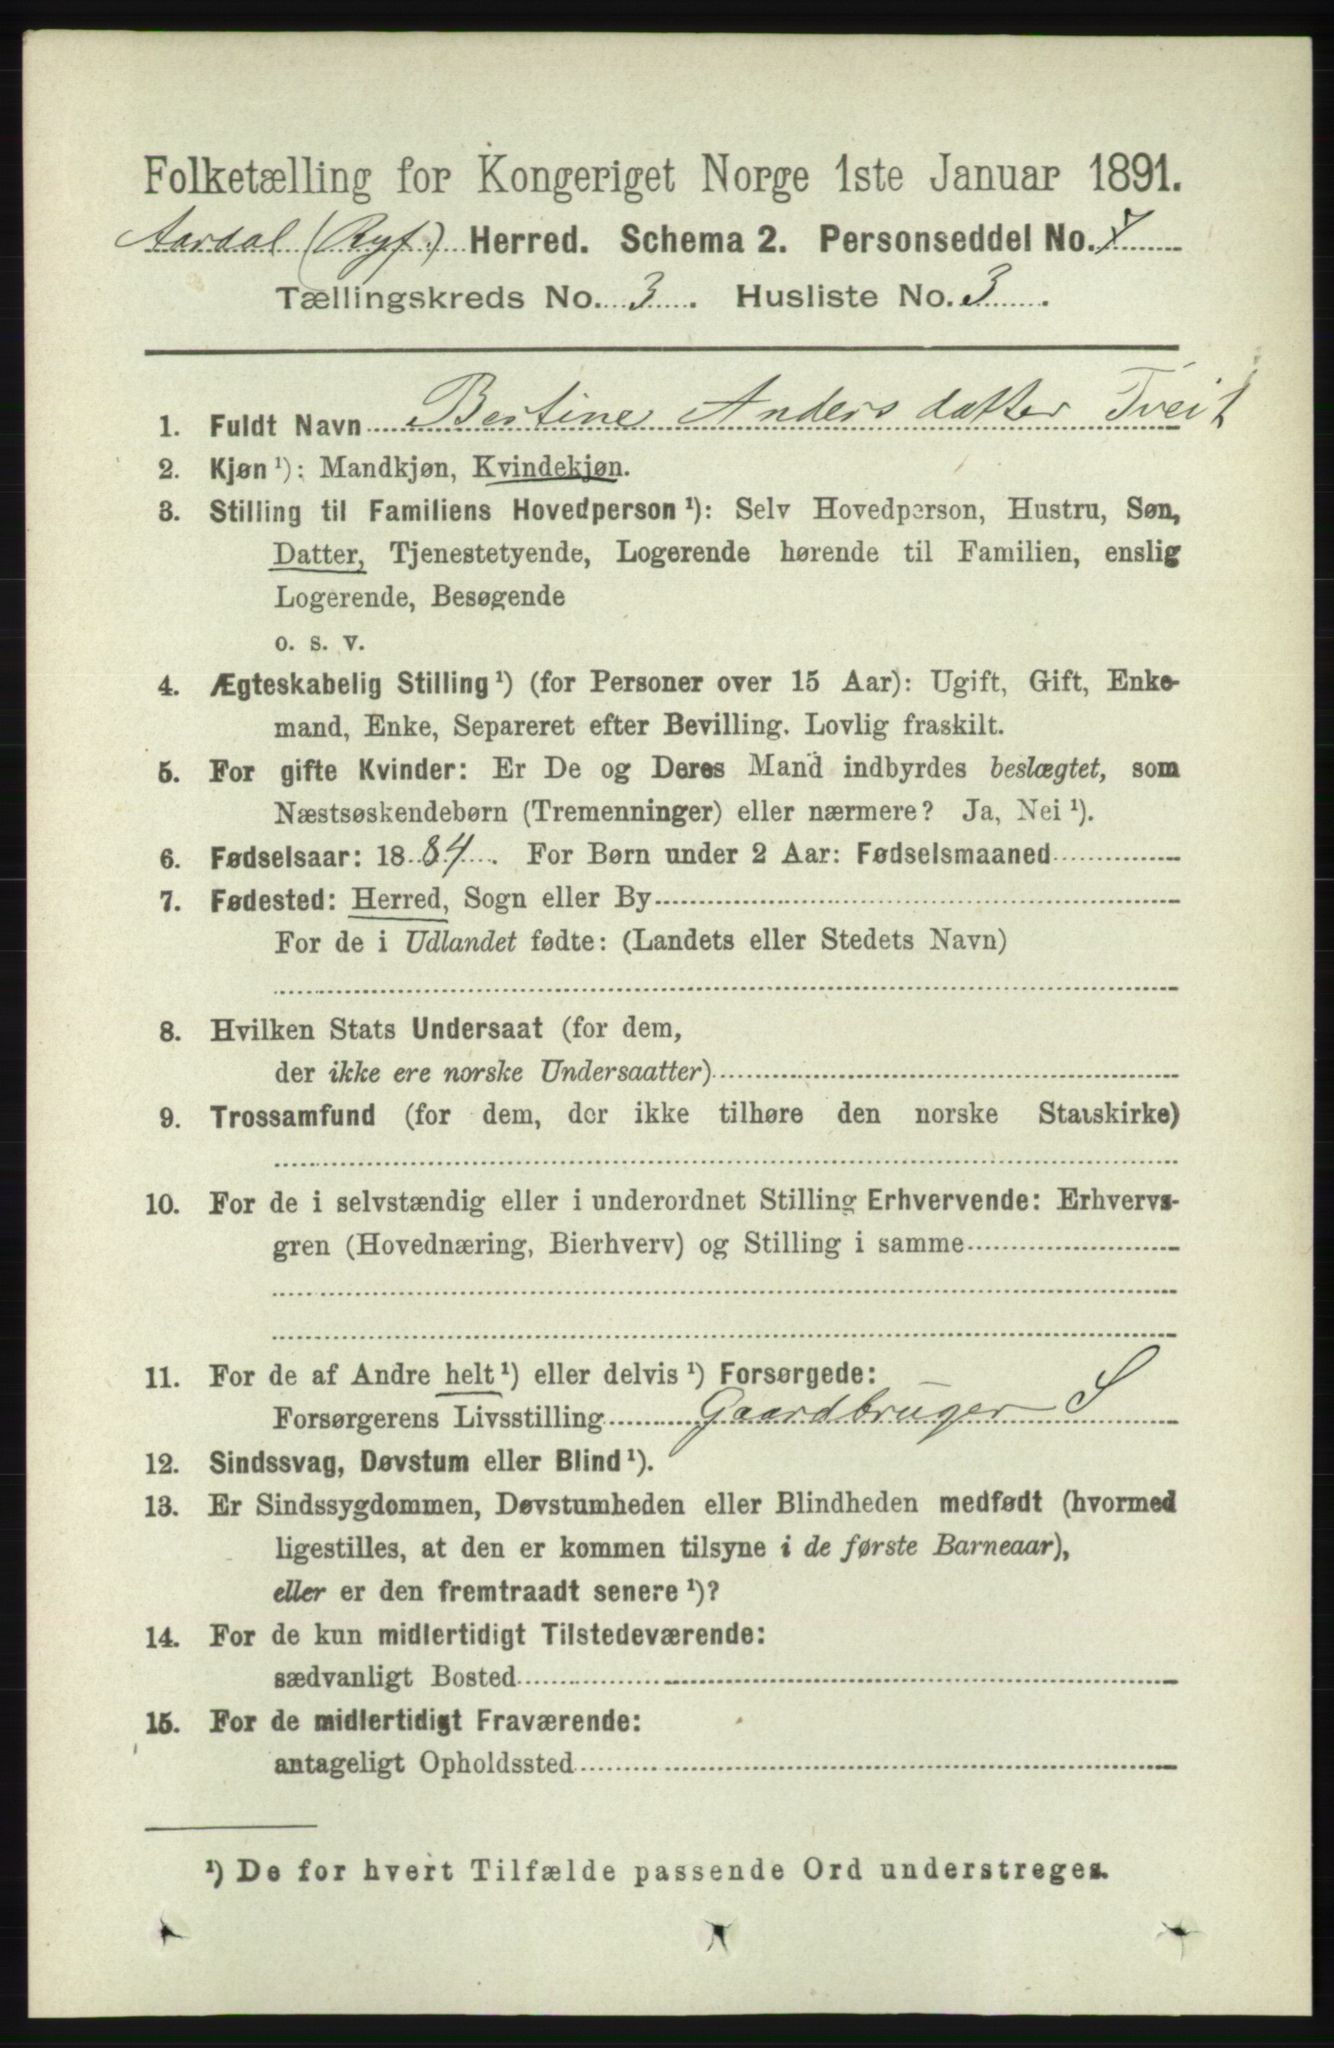 Folketælling for Kongeriget Norge 1ste Januar 1891.
Aardal (Ryf.) Herred. Schema 2. Personseddel No. 7
Tællingskreds No. 3. Husliste No. 3.
1. Fuldt Navn Bertine Andersdatter Tveit
2. Kjøn ¹): Mandkjøn, Kvindekjøn.
3. Stilling til Familiens Hovedperson ¹): Selv Hovedperson, Hustru, Søn,
Datter, Tjenestetyende, Logerende hørende til Familien, enslig
Logerende, Besøgende
o. s. v.
4. Ægteskabelig Stilling ¹) (for Personer over 15 Aar): Ugift, Gift, Enke-
mand, Enke, Separeret efter Bevilling. Lovlig fraskilt.
5. For gifte Kvinder: Er De og Deres Mand indbyrdes beslægtet, som
Næstsøskendebørn (Tremenninger) eller nærmere? Ja, Nei ¹).
6. Fødselsaar: 1884. For Børn under 2 Aar: Fødselsmaaned
7. Fødested: Herred, Sogn eller By
For de i Udlandet fødte: (Landets eller Stedets Navn)
8. Hvilken Stats Undersaat (for dem,
der ikke ere norske Undersaatter)
9. Trossamfund (for dem, der ikke tilhøre den norske Statskirke)
10. For de i selvstændig eller i underordnet Stilling Erhvervende: Erhvervs-
gren (Hovednæring, Bierhverv) og Stilling i samme
11. For de af Andre helt ¹) eller delvis ¹) Forsørgede:
Forsørgerens Livsstilling Gaardbruger S
12. Sindssvag, Døvstum eller Blind ¹).
13. Er Sindssygdommen, Døvstumheden eller Blindheden medfødt (hvormed
ligestilles, at den er kommen tilsyne i de første Barneaar),
eller er den fremtraadt senere ¹)?
14. For de kun midlertidigt Tilstedeværende:
sædvanligt Bosted
15. For de midlertidigt Fraværende:
antageligt Opholdssted
¹) De for hvert Tilfælde passende Ord understreges.